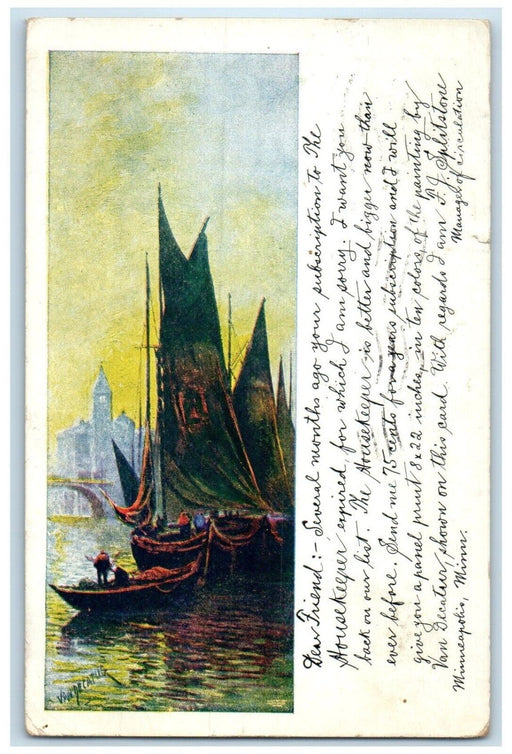 Dear Friend:- Several months ago your subscription to The
Housekeeper expired, for which I am sorry. I want you
back on our list. The Housekeeper is better and bigger now than
ever before. Send me 75 cents for a years subscription and I will
give you a panel print 8 x 22 inches, in ten colors, of the painting by
Van Decatur, shown on this card. With regards I am F. J. Splitstone
Minneapolis, Minn.
Manager of circulation